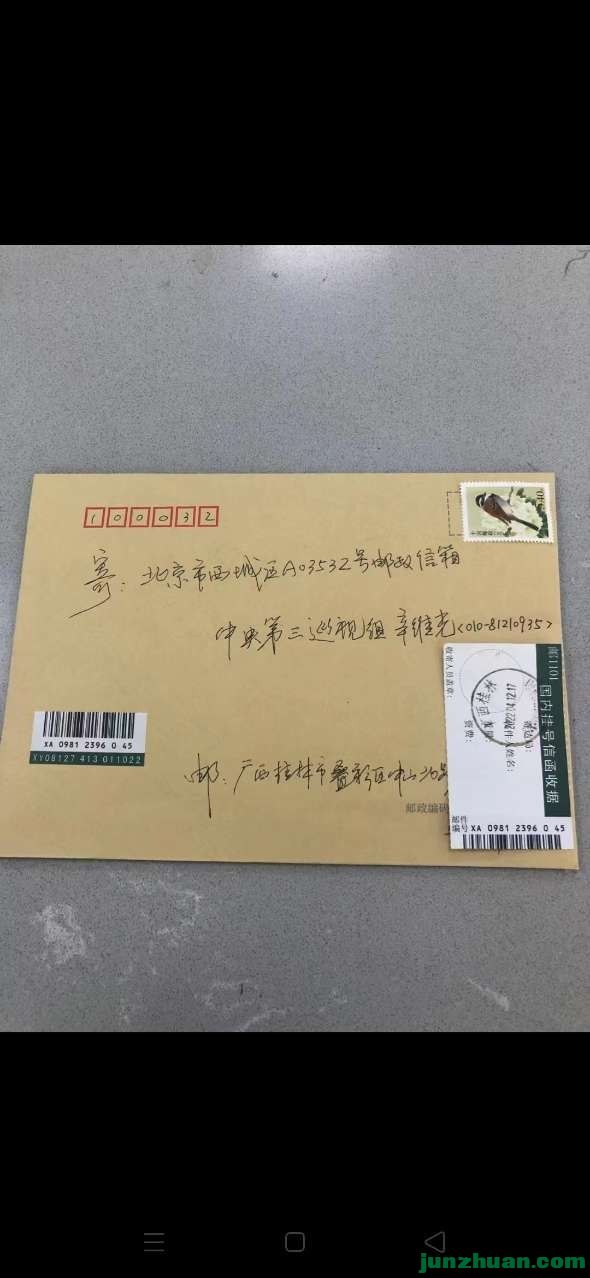 100032
寄：北京市西城区A03532号邮政信箱
中央第三巡视组 辛维光<010-81210935>
XA 0981 2396 0 45
XY08127 413 011022
邮：广西桂林市叠彩区中山北
邮政编码
邮1101 国内挂号信函收据
寄达局：
收件人姓名：
资费：
收寄人员盖章：
邮件
编号 XA 0981 2396 0 45
junzhuan.com